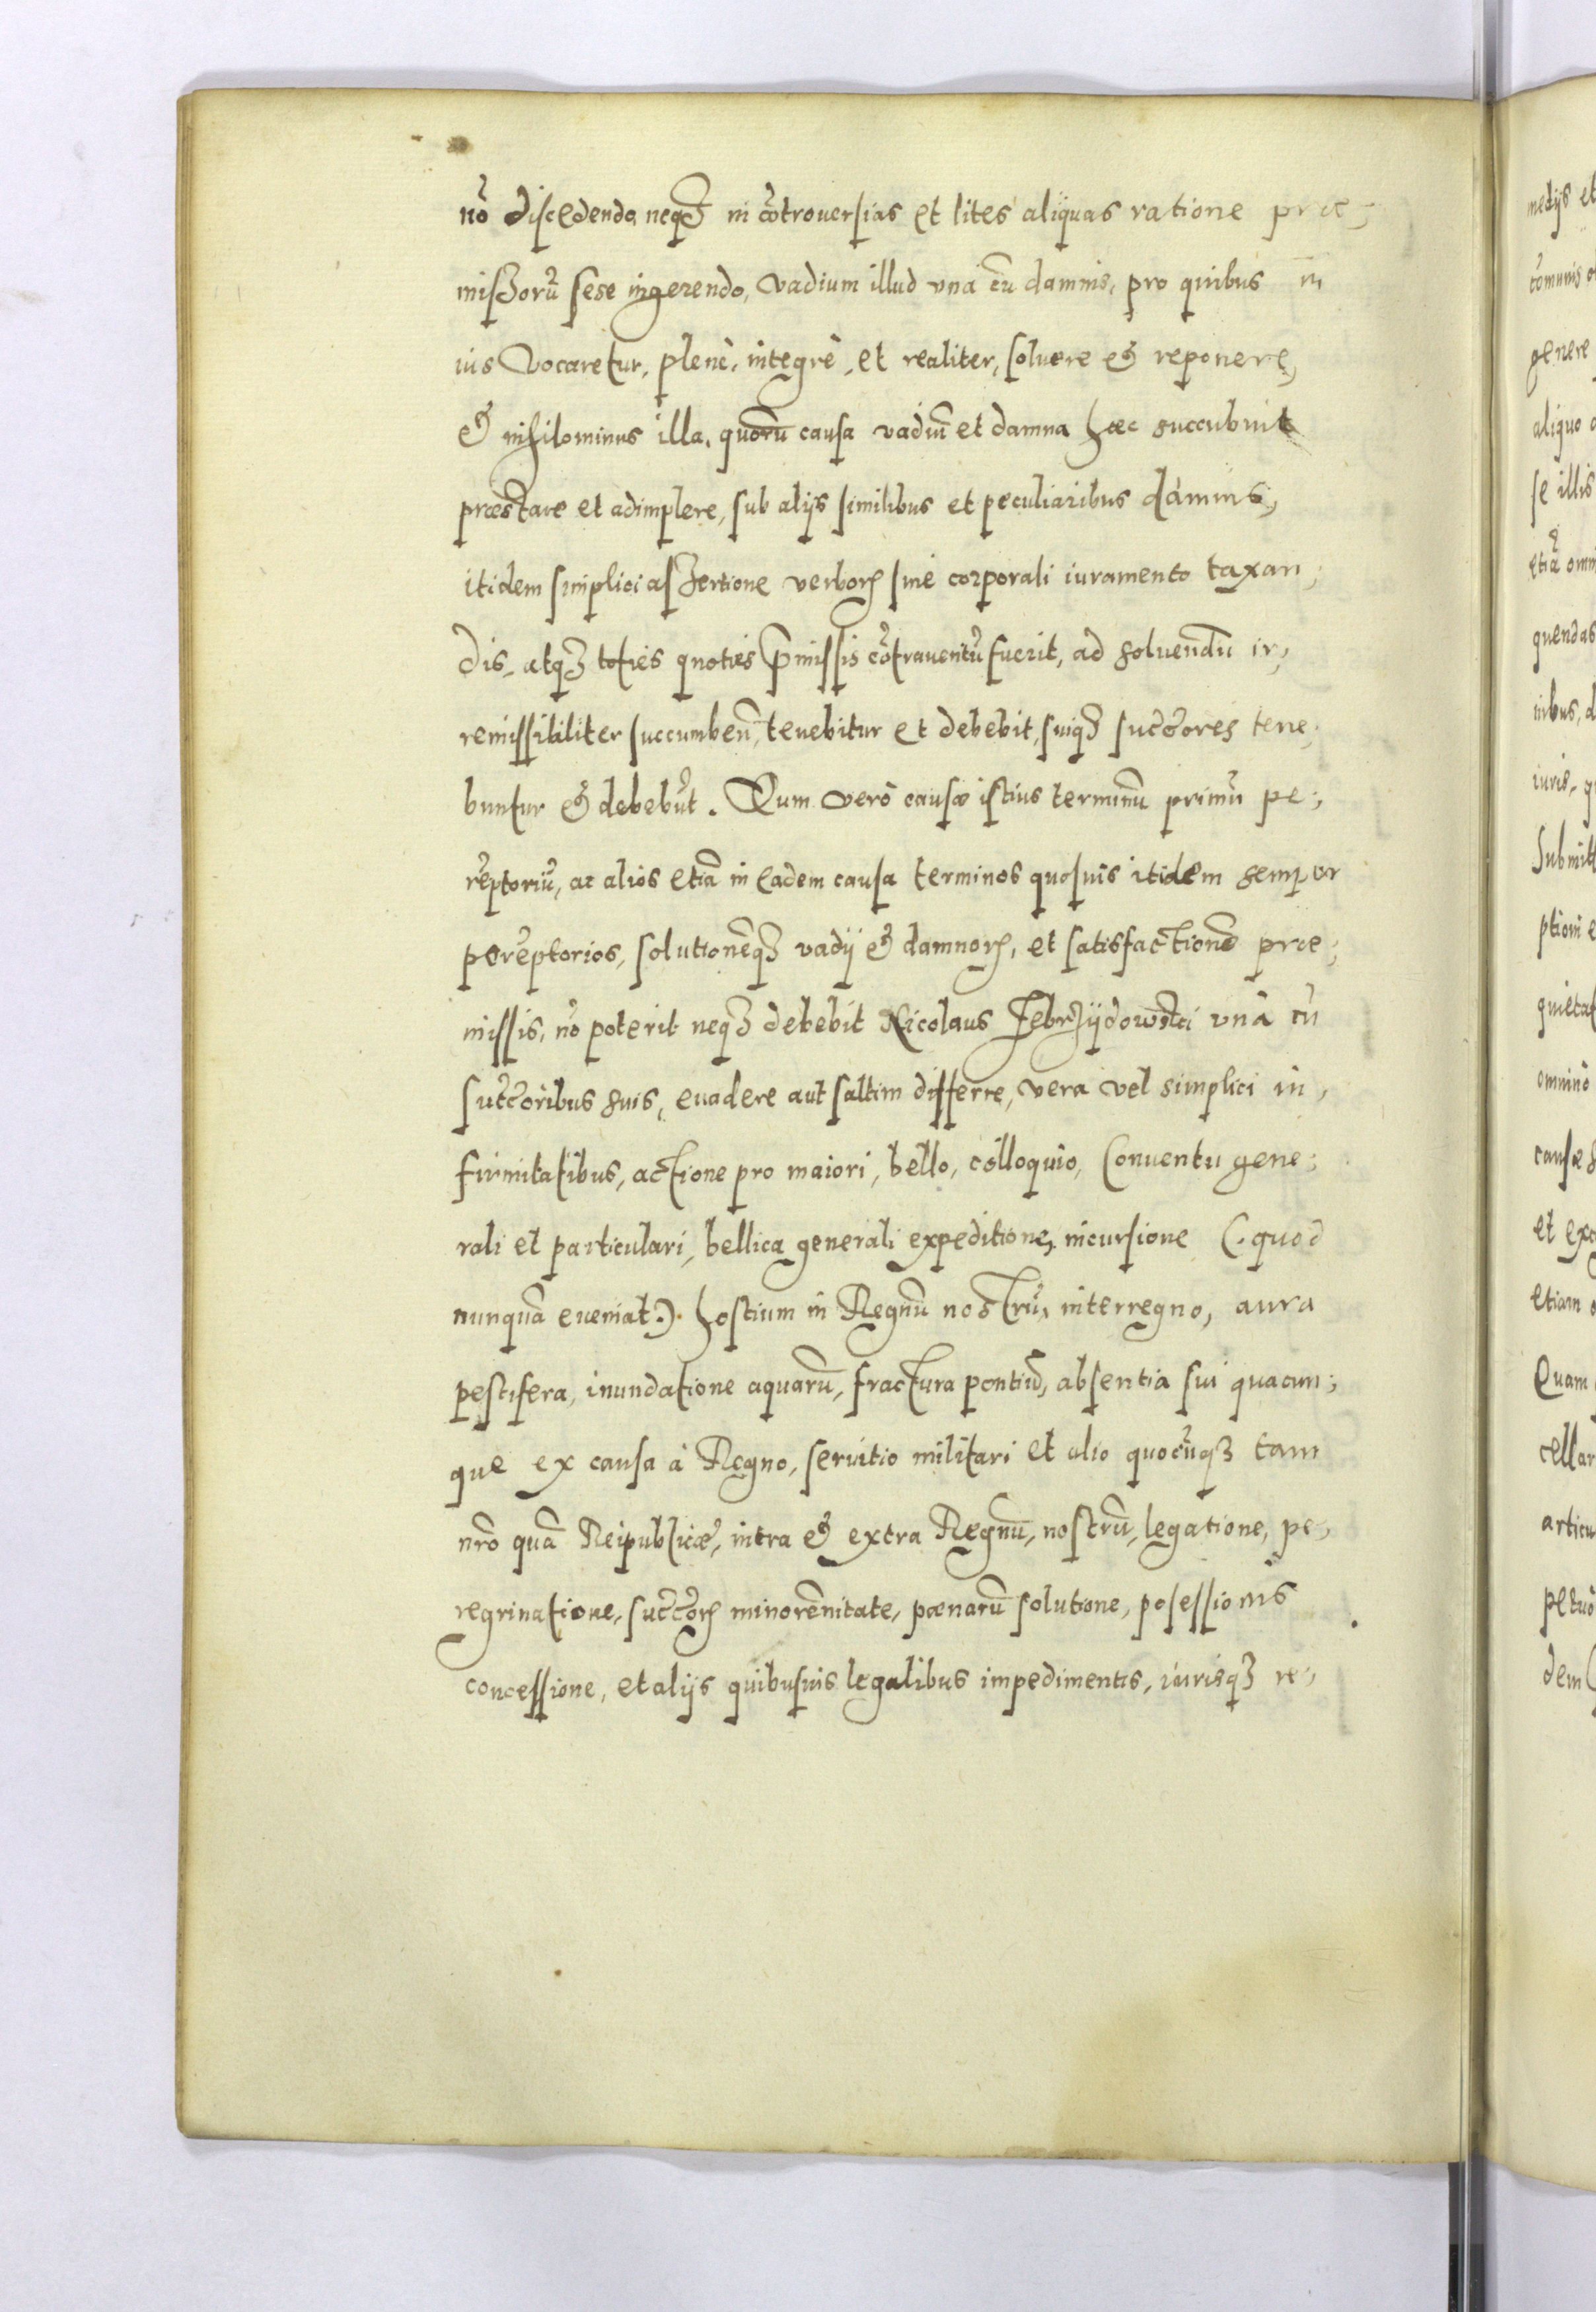 nõ discedendo, neqꝫ in cõtrouersias et lites aliquas ratione præ-
missorũ sese ingerendo, vadium illud vnà cũ damnis, pro quibus in
ius vocaretur, plenè, integrè, et realiter, soluere & reponere,
& nihilominus illa, quorũ causa vadiũ et damna hæc succubuit
præstare et adimplere, sub alijs similibus et peculiaribus damnis,
itidem simplici assertione verborꝝ sine corporali iuramento taxan-
dis, atqꝫ toties quoties p̄missis cõtrauentũ fuerit, ad soluendũ ir-
remissibiliter succumben̄, tenebitur et debebit, suiqꝫ succ̃ores tene-
buntur & debebũt. Qum verò causæ istius terminũ primũ pe-
rẽptoriũ, ac alios etiã in eadem causa terminos quosuis itidem semper
perẽptorios, solutionẽqꝫ vadij & damnorꝝ, et satisfactionẽ præ-
missis, nõ poterit neqꝫ debebit Nicolaus Zebrzÿdowski vnà cũ
succ̃oribus suis, euadere aut saltim differre, vera vel simplici in-
firmitatibus, actione pro maiori, bello, colloquio, Conuentu gene-
rali et particulari, bellica generali expeditione, incursione (quod
nunquã eueniat) hostium in Regnũ nostrũ, interregno, aura
pestifera, inundatione aquarũ, fractura pontiũ, absentia sui quacun-
que ex causa à Regno, seruitio militari et alio quocũqꝫ tam
nr̃o quã Reipublicæ, intra & extra Regnũ, nostrũ, legatione, pe-
regrinatione, succ̃orꝝ minorẽnitate, pœnarũ solutione, posessionis
concessione, et alijs quibusuis legalibus impedimentis, iurisqꝫ re-
medijs et
cõmunis
genere
aliquo
se illis
etiã
quendas
iuris,
quietat
omninò
causæ
et
etiam
Quam
cellar
articu
petuò
dem